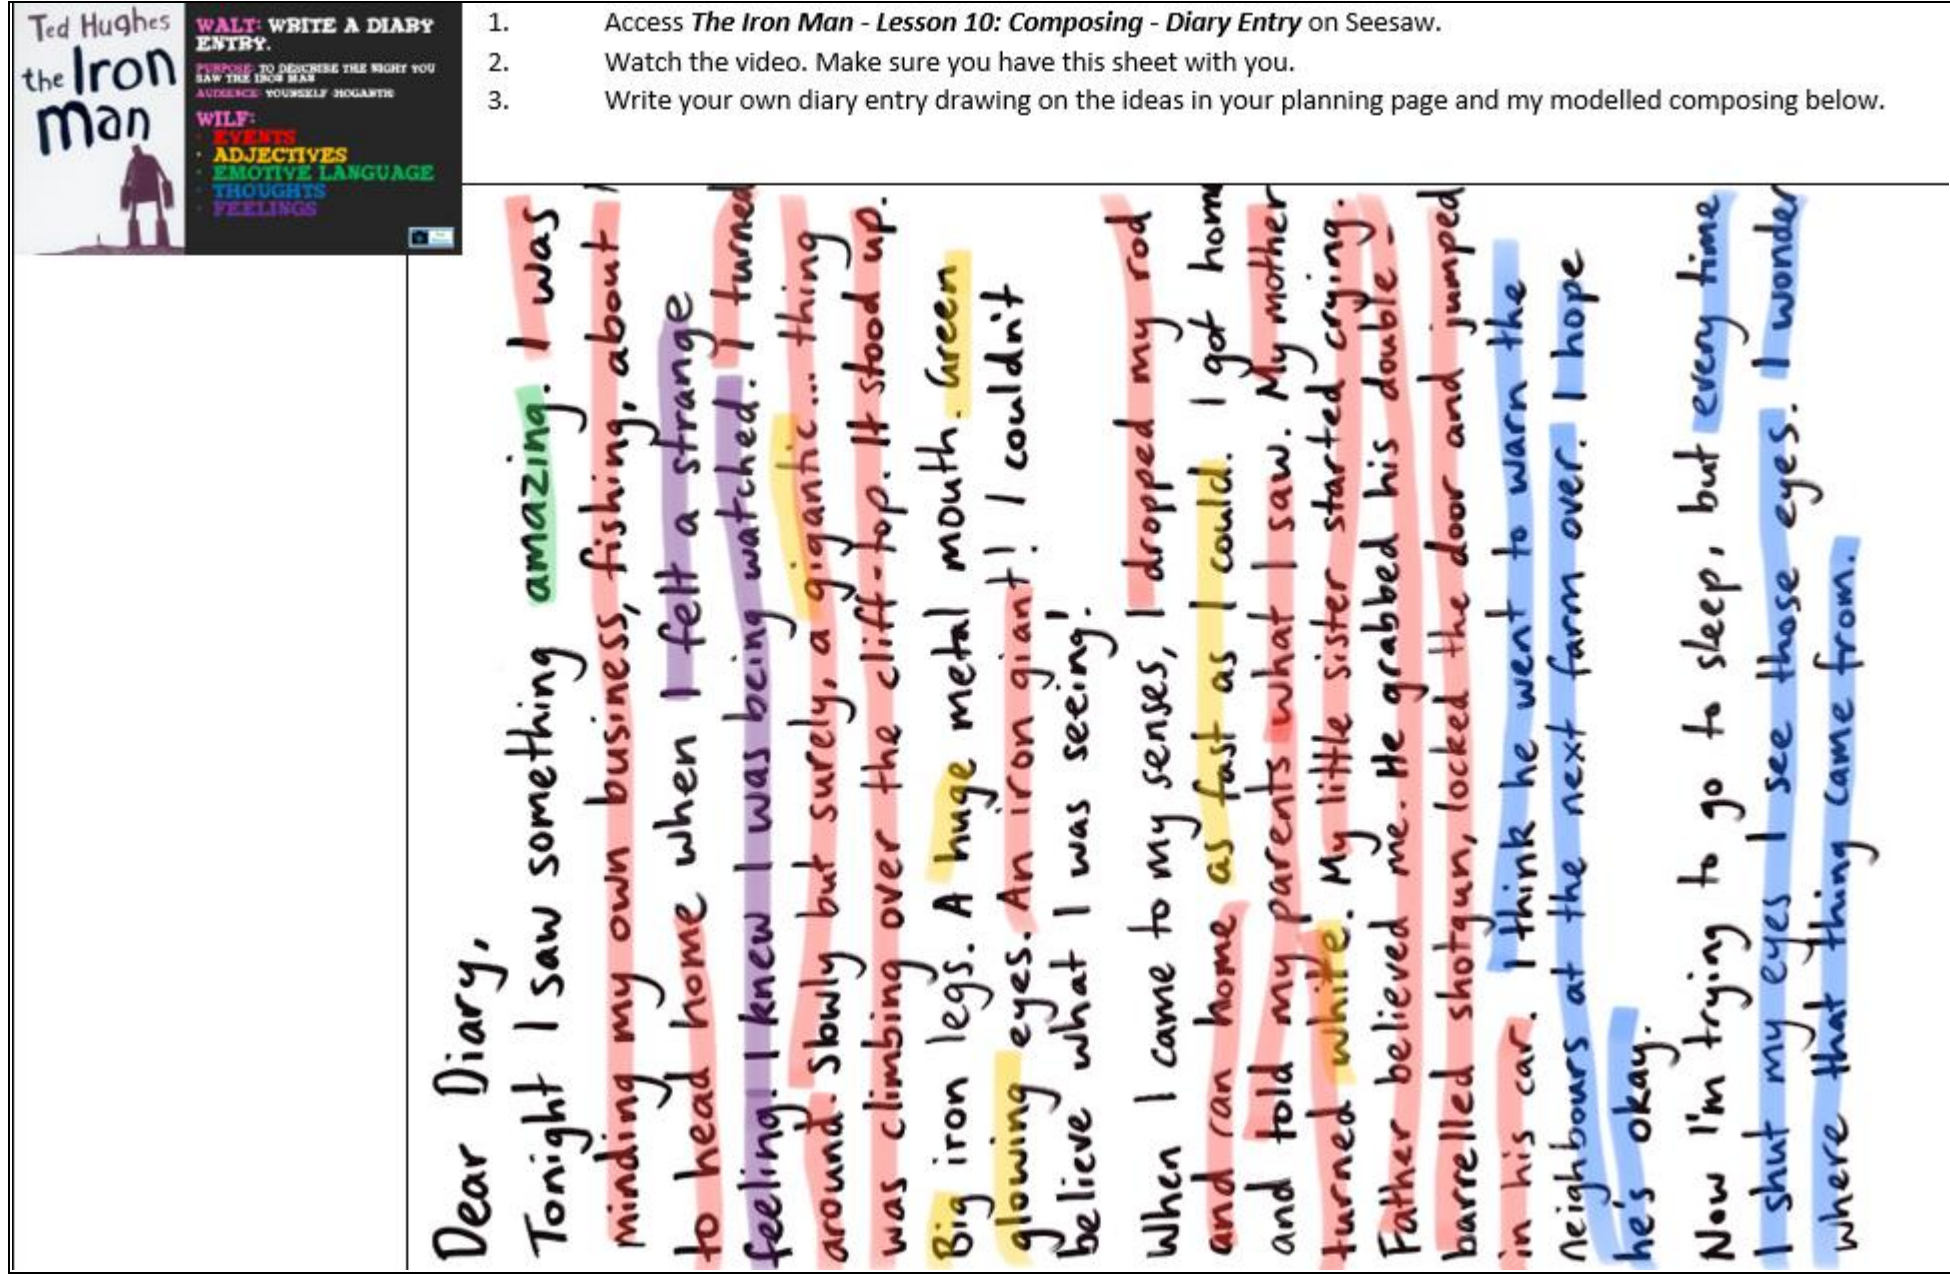 Ted Hughes
the Iron
man
WALT: WRITE A DIARY
ENTRY.
PURPOSE: TO DESCRIBE THE NIGHT YOU
SAW THE IRON MAN
AUDIENCE: YOURSELF (HOGARTH)
WILF:
· EVENTS
· ADJECTIVES
· EMOTIVE LANGUAGE
· THOUGHTS
· FEELINGS
1. Access The Iron Man - Lesson 10: Composing - Diary Entry on Seesaw.
2. Watch the video. Make sure you have this sheet with you.
3. Write your own diary entry drawing on the ideas in your planning page and my modelled composing below.
Dear Diary,
Tonight I saw something amazing. I was
minding my own business, fishing, about
to head home when I felt a strange
feeling. I knew I was being watched. I turned
around. Slowly but surely, a gigantic... thing
was climbing over the cliff-top. It stood up.
Big iron legs. A huge metal mouth. Green
glowing eyes. An iron giant! I couldn't
believe what I was seeing!
When I came to my senses, I dropped my rod
and ran home as fast as I could. I got home
and told my parents what I saw. My mother
turned white. My little sister started crying.
Father believed me. He grabbed his double-
barrelled shotgun, locked the door and jumped
in his car. I think he went to warn the
neighbours at the next farm over. I hope
he's okay.
Now I'm trying to go to sleep, but every time
I shut my eyes I see those eyes. I wonder
where that thing came from.